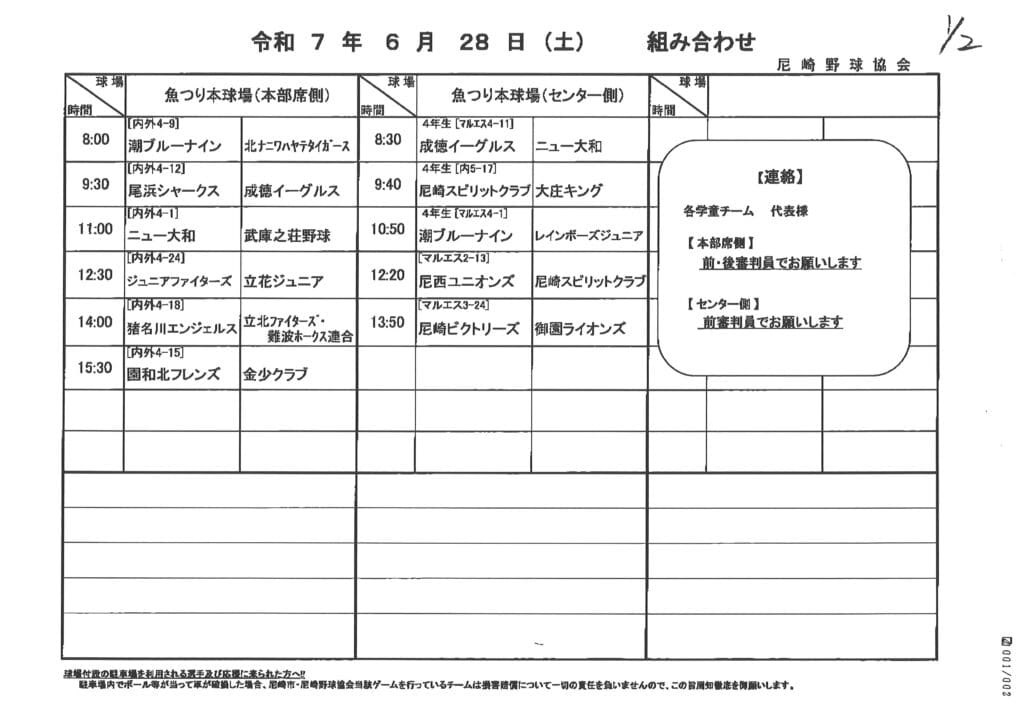 令和 7 年 6 月 28 日 (土) 組み合わせ
1/2
尼崎野球協会
球場 時間 魚つり本球場(本部席側) 球場 時間 魚つり本球場(センター側) 球場 時間
8:00 [内外4-9] 潮ブルーナイン 北ナニワハヤテタイガース 8:30 4年生 [マルエス4-11] 成徳イーグルス ニュー大和
9:30 [内外4-12] 尾浜シャークス 成徳イーグルス 9:40 4年生 [内5-17] 尼崎スピリットクラブ 大庄キング
11:00 [内外4-1] ニュー大和 武庫之荘野球 10:50 4年生 [マルエス4-1] 潮ブルーナイン レインボーズジュニア
12:30 [内外4-24] ジュニアファイターズ 立花ジュニア 12:20 [マルエス2-13] 尼西ユニオンズ 尼崎スピリットクラブ
14:00 [内外4-18] 猪名川エンジェルス 立北ファイターズ・難波ホークス連合 13:50 [マルエス3-24] 尼崎ビクトリーズ 御園ライオンズ
15:30 [内外4-15] 園和北フレンズ 金少クラブ
【連絡】
各学童チーム 代表様
【本部席側】
前・後審判員でお願いします
【センター側】
前審判員でお願いします
球場付設の駐車場を利用される選手及び応援に来られた方へ!!
駐車場内でボール等が当って車が破損した場合、尼崎市・尼崎野球協会当該ゲームを行っているチームは損害賠償について一切の責任を負いませんので、この旨周知徹底を御願いします。
001/002